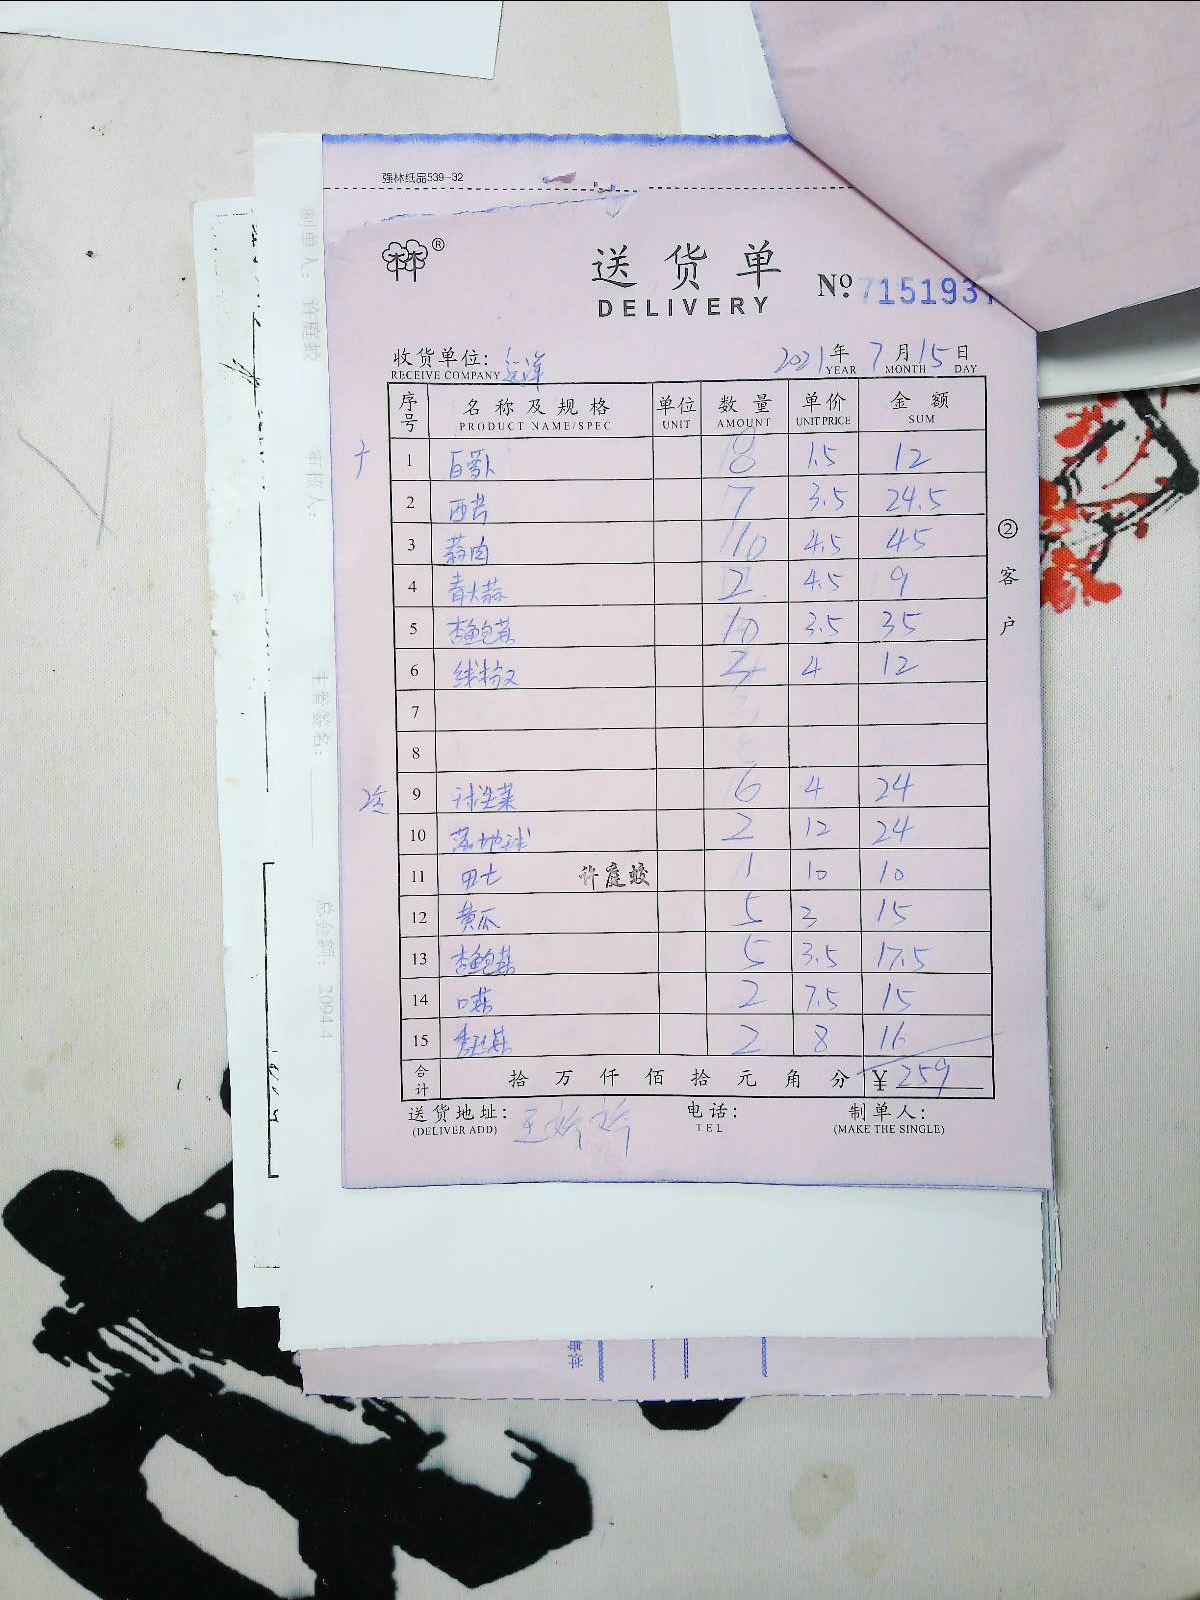 强林纸品539-32
林®
送货单
DELIVERY
Nº 7151937
收货单位: 远洋 2021年 7月 15日
RECEIVE COMPANY YEAR MONTH DAY
序号 名称及规格 单位 数量 单价 金额
PRODUCT NAME/SPEC UNIT AMOUNT UNIT PRICE SUM
1 8 1.5 12
2 西芹 7 3.5 24.5
3 蒜肉 10 4.5 45
4 青大蒜 2 4.5 9
5 杏鲍菇 10 3.5 35
6 4 12
7
8
9 6 4 24
10 2 12 24
11 许庭蛟 1 10 10
12 黄瓜 5 3 15
13 杏鲍菇 5 3.5 17.5
14 口菇 2 7.5 15
15 2 8 16
合计 拾 万 仟 佰 拾 元 角 分 ¥ 259
送货地址: 电话: 制单人:
(DELIVER ADD) TEL (MAKE THE SINGLE)
② 客户
制单人: 许庭蛟
审核人:
主管签名:
总金额: 20944